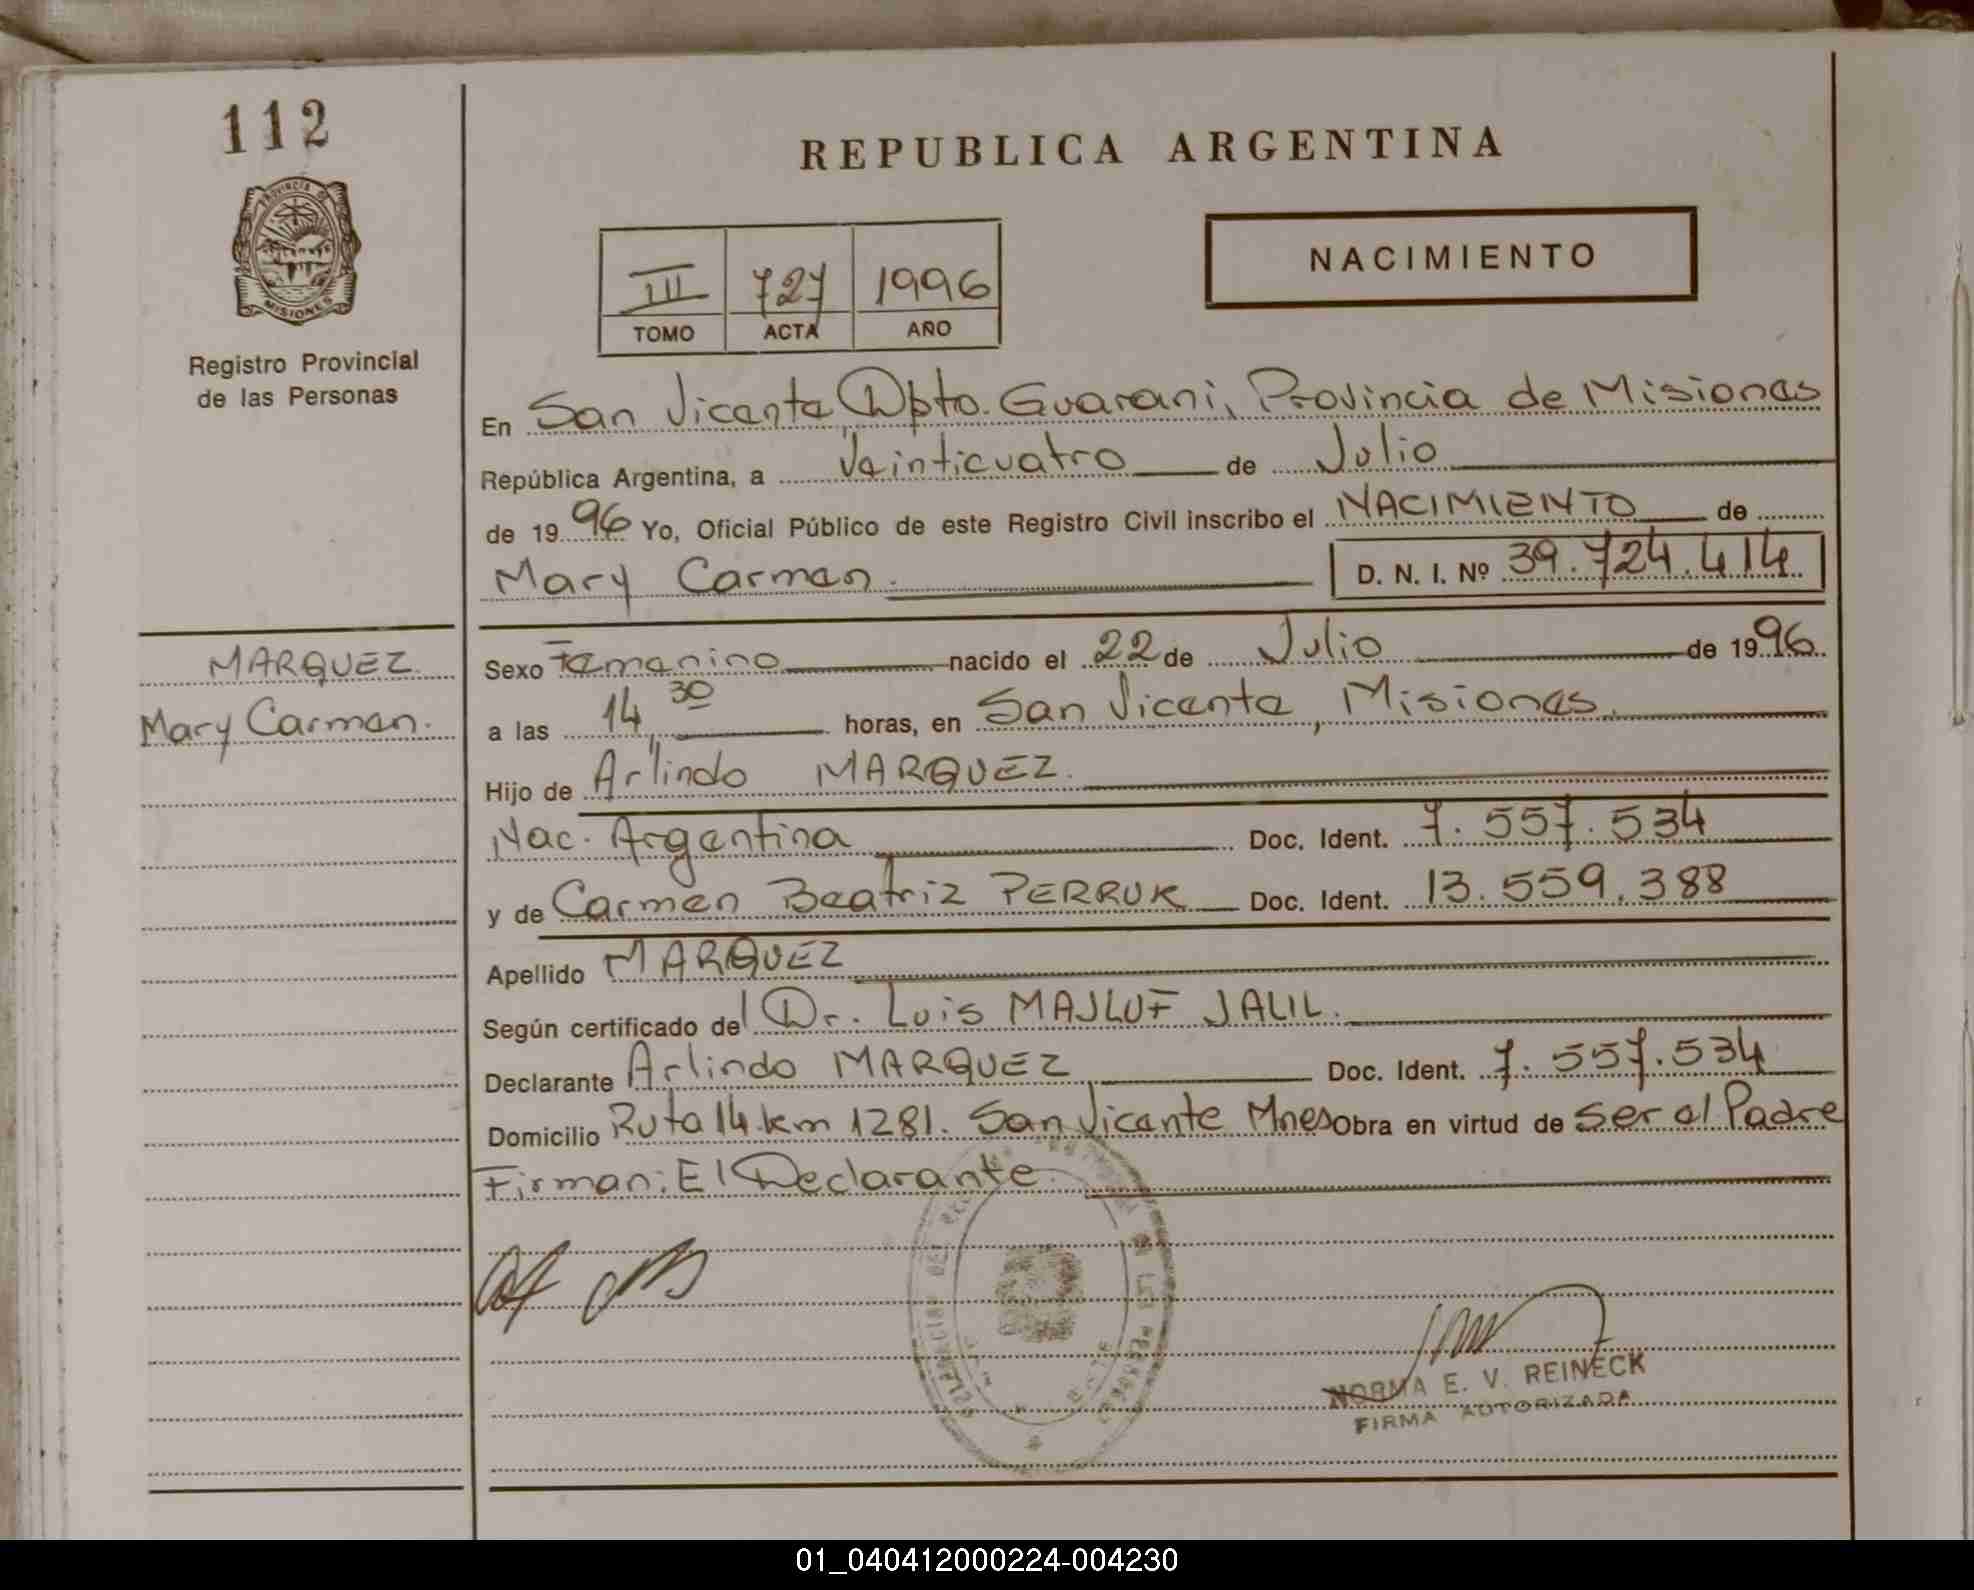 112
REPUBLICA ARGENTINA
PROVINCIA DE
MISIONES
Registro Provincial
de las Personas
III 727 1996
TOMO ACTA AÑO
NACIMIENTO
En San Vicente Dpto. Guarani, Provincia de Misiones
República Argentina, a Veinticuatro de Julio
de 1996 Yo, Oficial Público de este Registro Civil inscribo el NACIMIENTO de
Mary Carmen. D. N. I. Nº 39.724.414
MARQUEZ
Mary Carmen.
Sexo Femenino nacido el 22 de Julio de 1996.
a las 14,30 horas, en San Vicente, Misiones.
Hijo de Arlindo MARQUEZ.
Nac. Argentina Doc. Ident. 7.557.534
y de Carmen Beatriz PERRUK Doc. Ident. 13.559.388
Apellido MARQUEZ
Según certificado del Dr. Luis MAJLUF JALIL.
Declarante Arlindo MARQUEZ Doc. Ident. 7.557.534
Domicilio Ruta 14 km 1281. San Vicente Mnes Obra en virtud de Ser el Padre
Firman: El Declarante.
NORMA E. V. REINECK
FIRMA AUTORIZADA
01_040412000224-004230